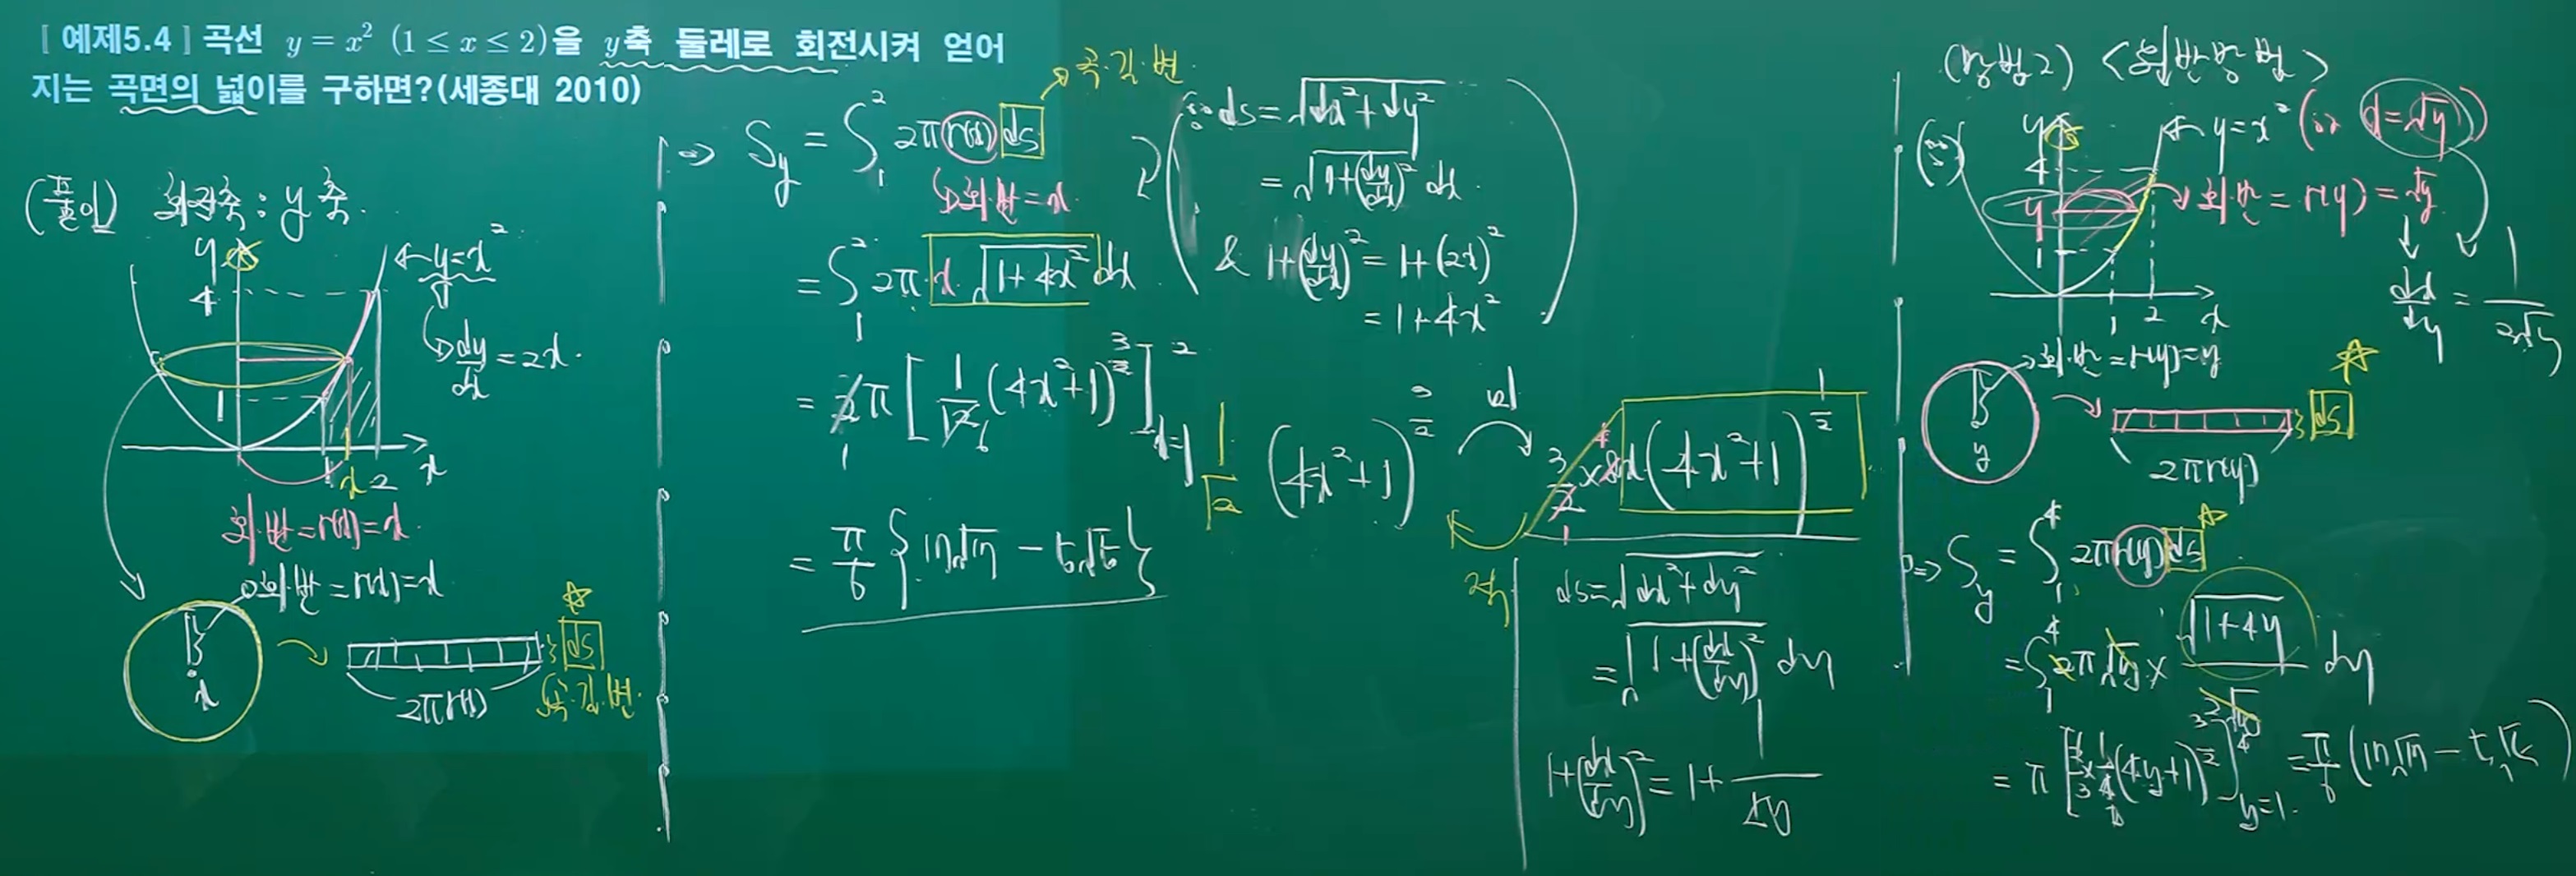 [ 예제5.4 ] 곡선 y = x² (1 ≤ x ≤ 2)을 y축 둘레로 회전시켜 얻어
지는 곡면의 넓이를 구하면?(세종대 2010)
(풀이) 회전축 : y축.
y
4
1
y=x²
dy/dx = 2x.
1 x 2 x
회.반=r(x)=x.
회.반=r(x)=x
x
2πr(x)
ds
곡.길.변.
⇒ S_y = ∫₁² 2π r(x) ds
곡.길.변
회.반=x
= ∫₁² 2π·x √(1+4x²) dx
= 2π [ 1/12 (4x²+1)^(3/2) ]²_{x=1}
= π/6 { 17√17 − 5√5 }
(∵ ds = √(dx²+dy²)
= √(1+(dy/dx)²) dx.
& 1+(dy/dx)² = 1+(2x)²
= 1+4x²)
1/12 (4x²+1)^(3/2)
미
3/2 × 8x (4x²+1)^(1/2)
적
ds = √(dx²+dy²)
= √(1+(dx/dy)²) dy
1+(dx/dy)² = 1+ 1/4y
(방법2) <회반방법>
(∵)
y
4
y
1
y=x² (∴ x=√y)
회.반 = r(y) = √y
dx/dy = 1/2√y
1 2 x
회.반=r(y)=y
y
2πr(y)
ds
⇒ S_y = ∫₁⁴ 2π r(y) ds
= ∫₁⁴ 2π √y × √(1+4y) / 2√y dy
= π [ 2/3 × 1/4 (4y+1)^(3/2) ]⁴_{y=1} = π/6 (17√17 − 5√5)